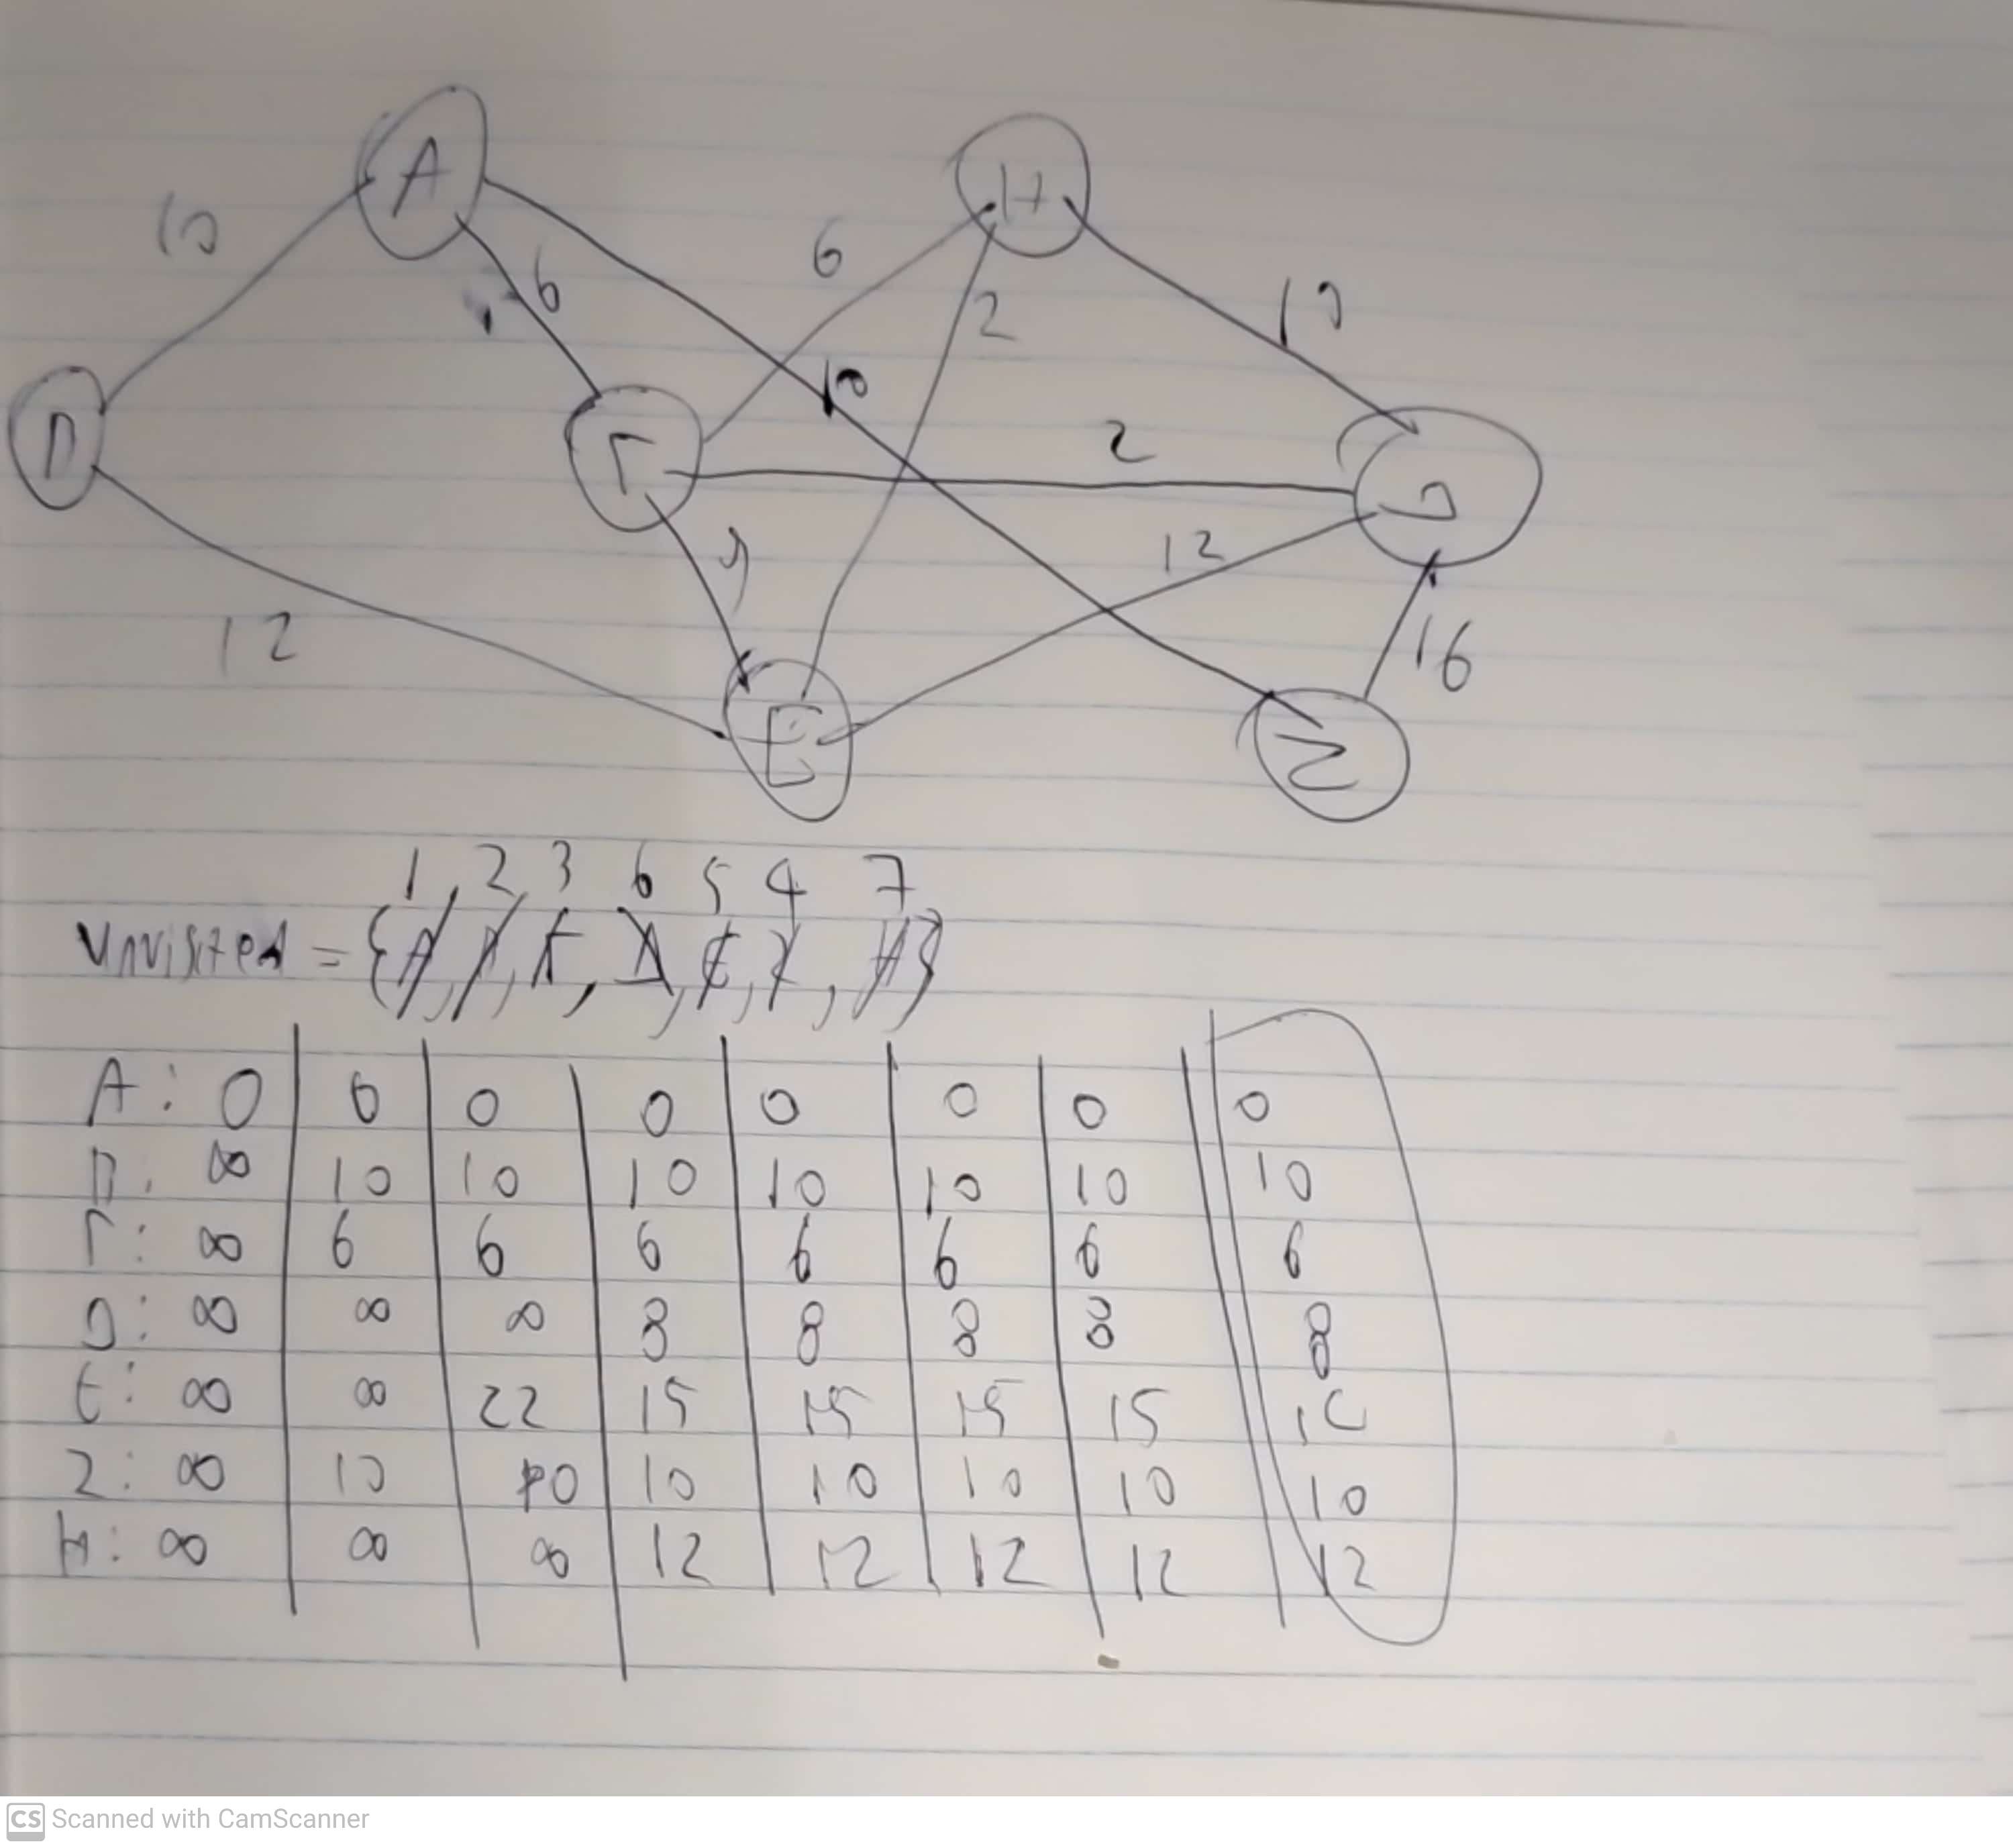 A
H
10
6
6
2
10
10
B
Γ
2
Δ
9
12
12
16
E
Z
1 2 3 6 5 4 7
Unvisited = {A, B, Γ, Δ, E, Z, H}
A: 0 | 0 | 0 | 0 | 0 | 0 | 0 | 0
B: ∞ | 10 | 10 | 10 | 10 | 10 | 10 | 10
Γ: ∞ | 6 | 6 | 6 | 6 | 6 | 6 | 6
Δ: ∞ | ∞ | ∞ | 8 | 8 | 8 | 8 | 8
E: ∞ | ∞ | 22 | 15 | 15 | 15 | 15
Z: ∞ | 10 | 10 | 10 | 10 | 10 | 10 | 10
H: ∞ | ∞ | ∞ | 12 | 12 | 12 | 12 | 12
CS Scanned with CamScanner